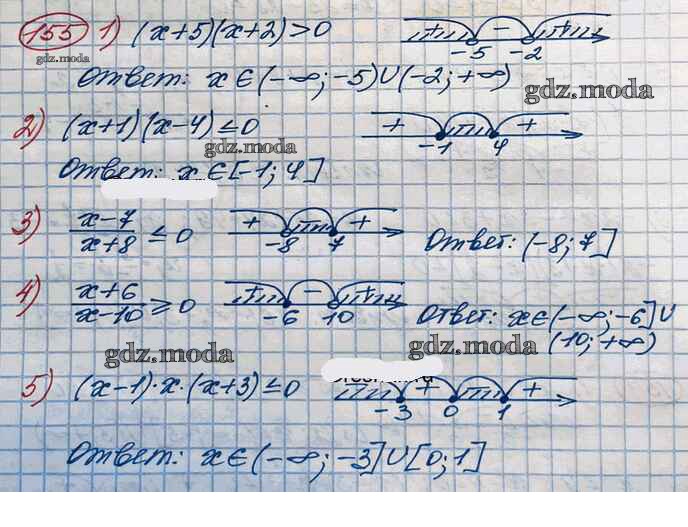 155 1) (x+5)(x+2)>0 + -5 - -2 +
gdz.moda
Ответ: x∈(-∞;-5)∪(-2;+∞)
gdz.moda
2) (x+1)(x-4)≤0 + -1 4 +
gdz.moda
Ответ: x∈[-1;4]
3) x-7/x+8 ≤0 + -8 7 + Ответ: (-8;7]
4) x+6/x-10 ≥0 + -6 - 10 + Ответ: x∈(-∞;-6]∪
(10;+∞)
gdz.moda gdz.moda
5) (x-1)·x·(x+3)≤0 -3 + 0 1 +
Ответ: x∈(-∞;-3]∪[0;1]